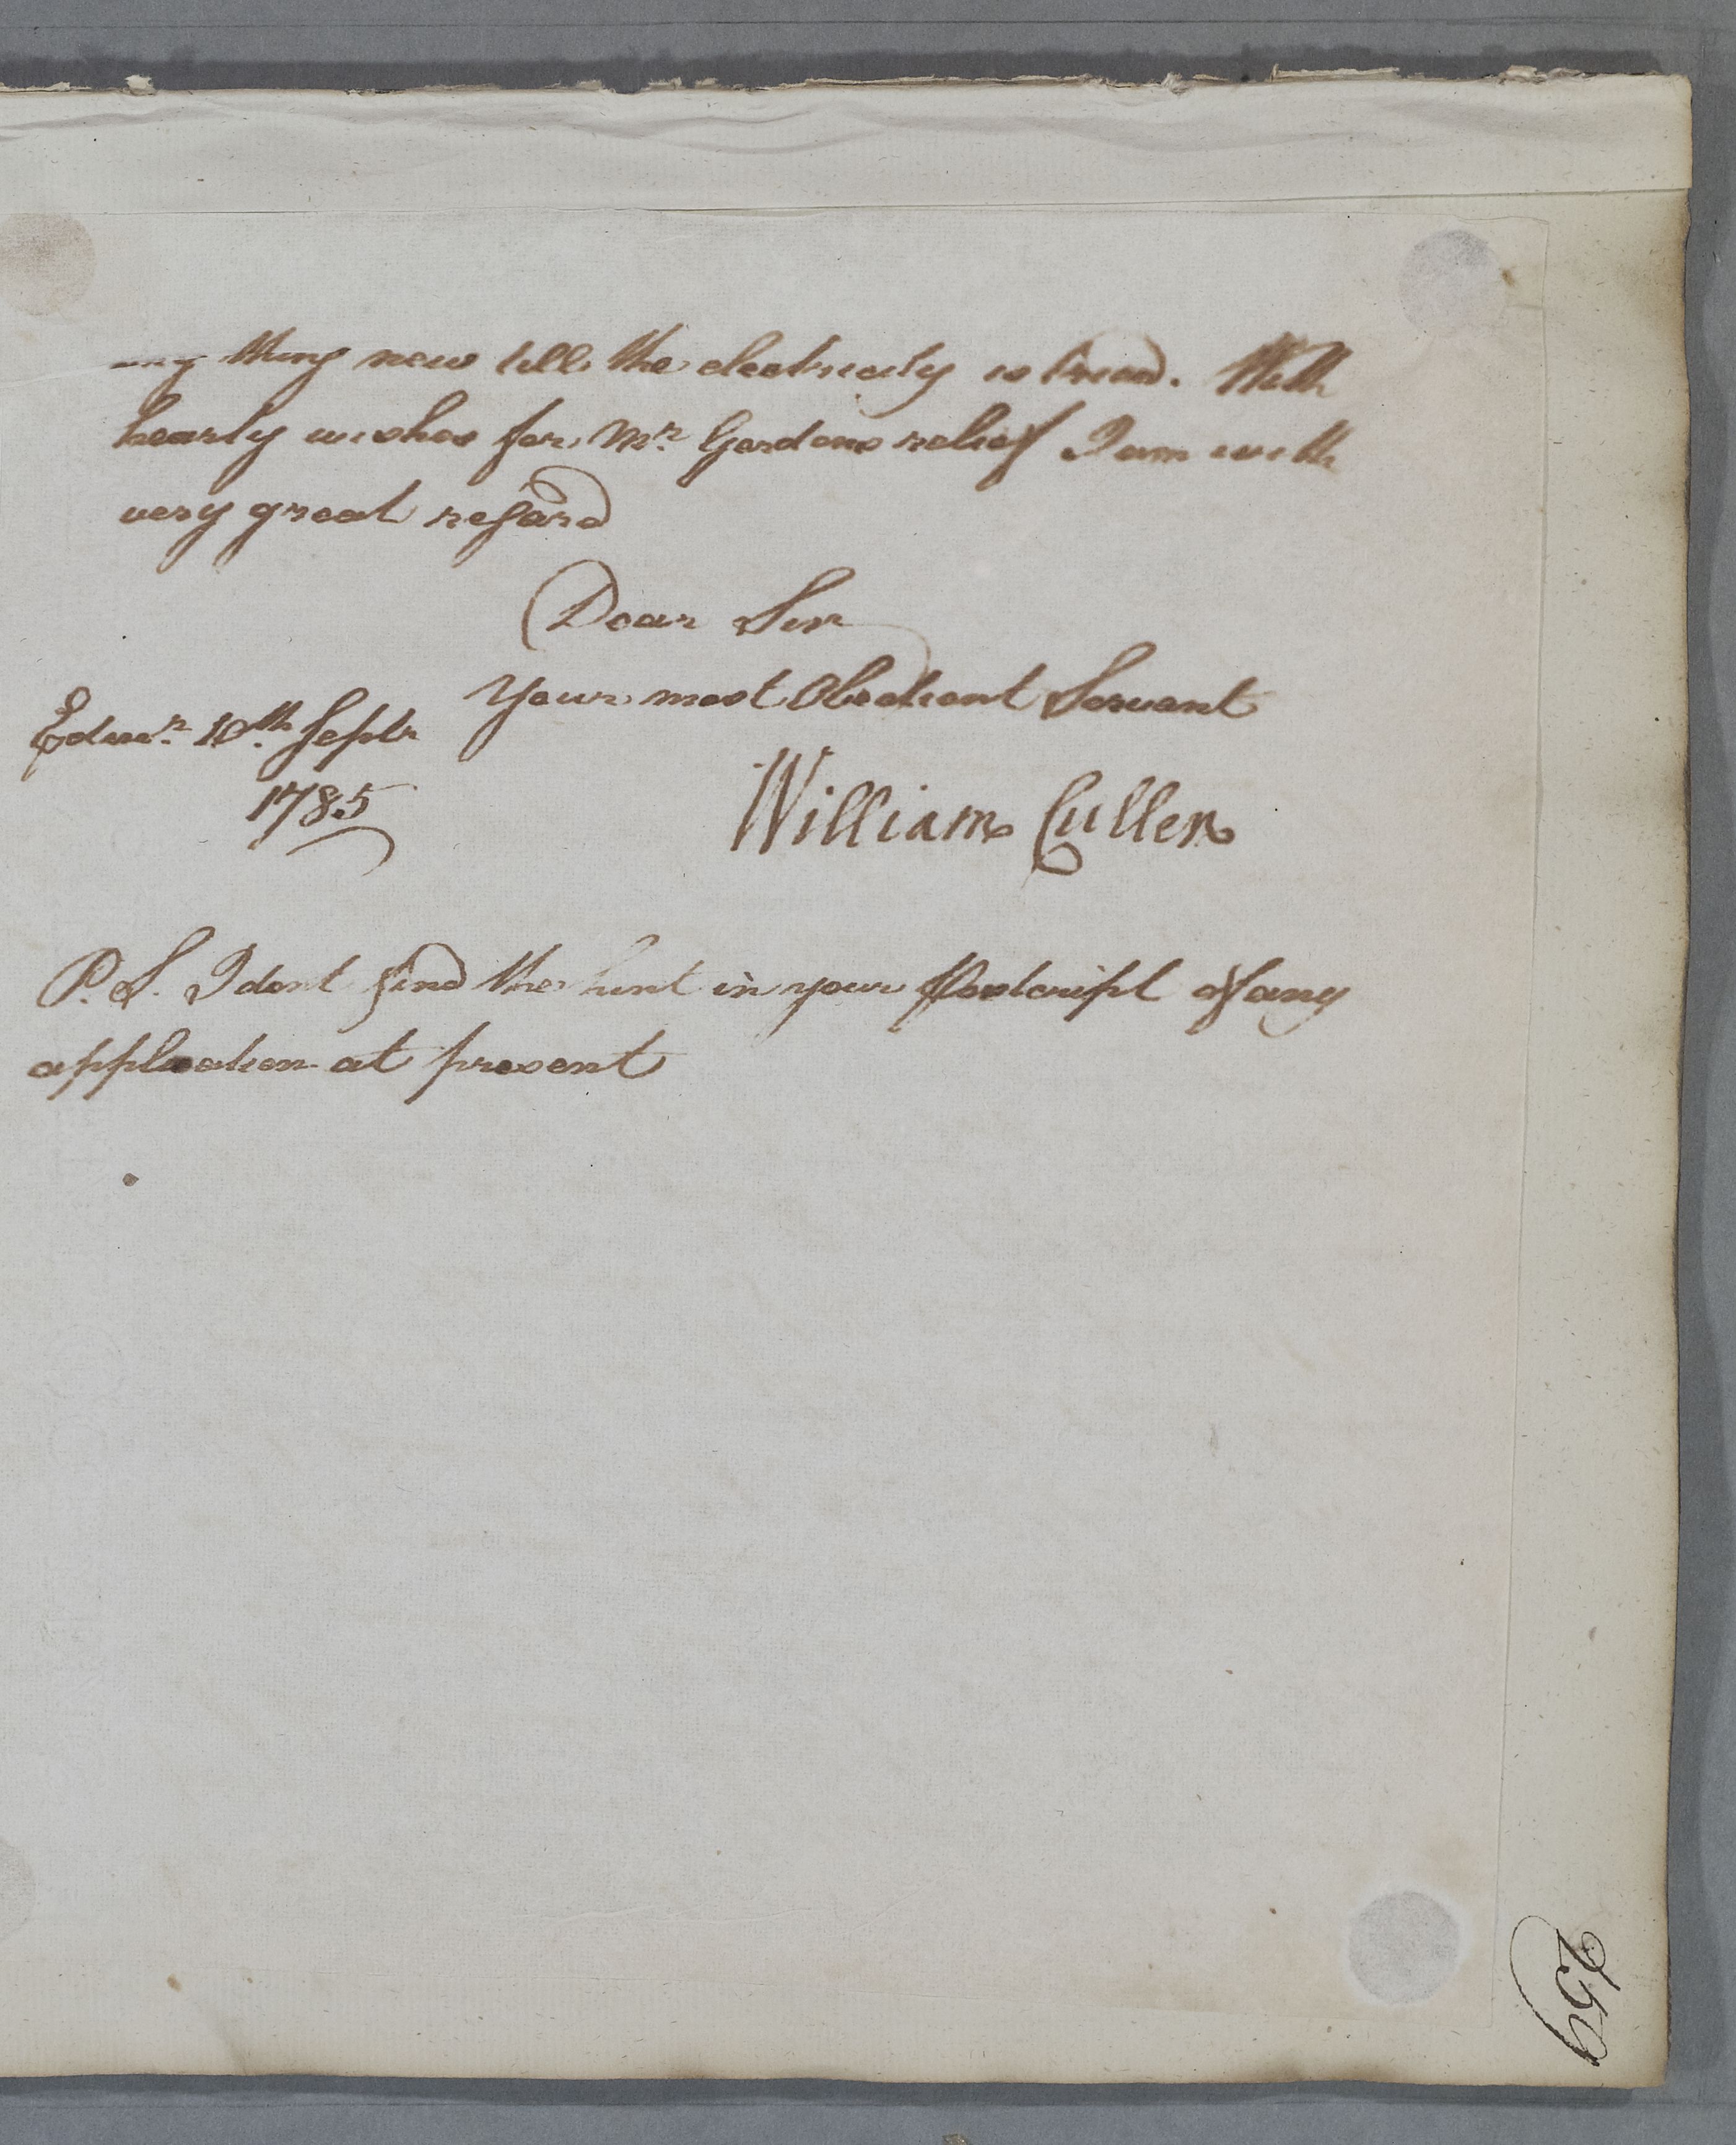 any thing new till the electricity is tried. With
hearty wishes for Mr. Gordons relief I am with
very great regard
Dear Sir
Your most Obedient Servant
Edinr. 10th. Septr
1785
William Cullen
P.S. I dont find the hint in your Postcript of any
application at present
259